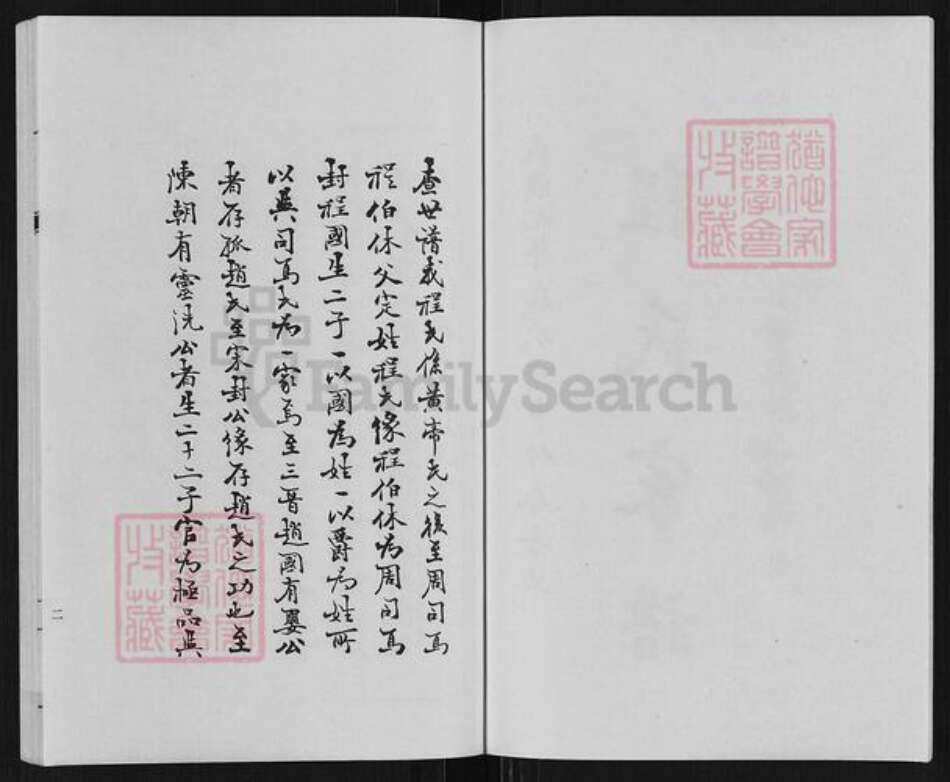 查世譜我程氏係黃帝氏之後至周司馬
程伯休父定姓程氏緣程伯休為周司馬
封程國生二子一以國為姓一以爵為姓所
以與司馬氏為一家焉至三晉趙國有嬰公
者存孤趙氏至宋封公緣存趙氏之功也至
陳朝有靈洗公者生二十二子官為極品與
二
猶他家
譜學會
收藏
猶他家
譜學會
收藏
FamilySearch